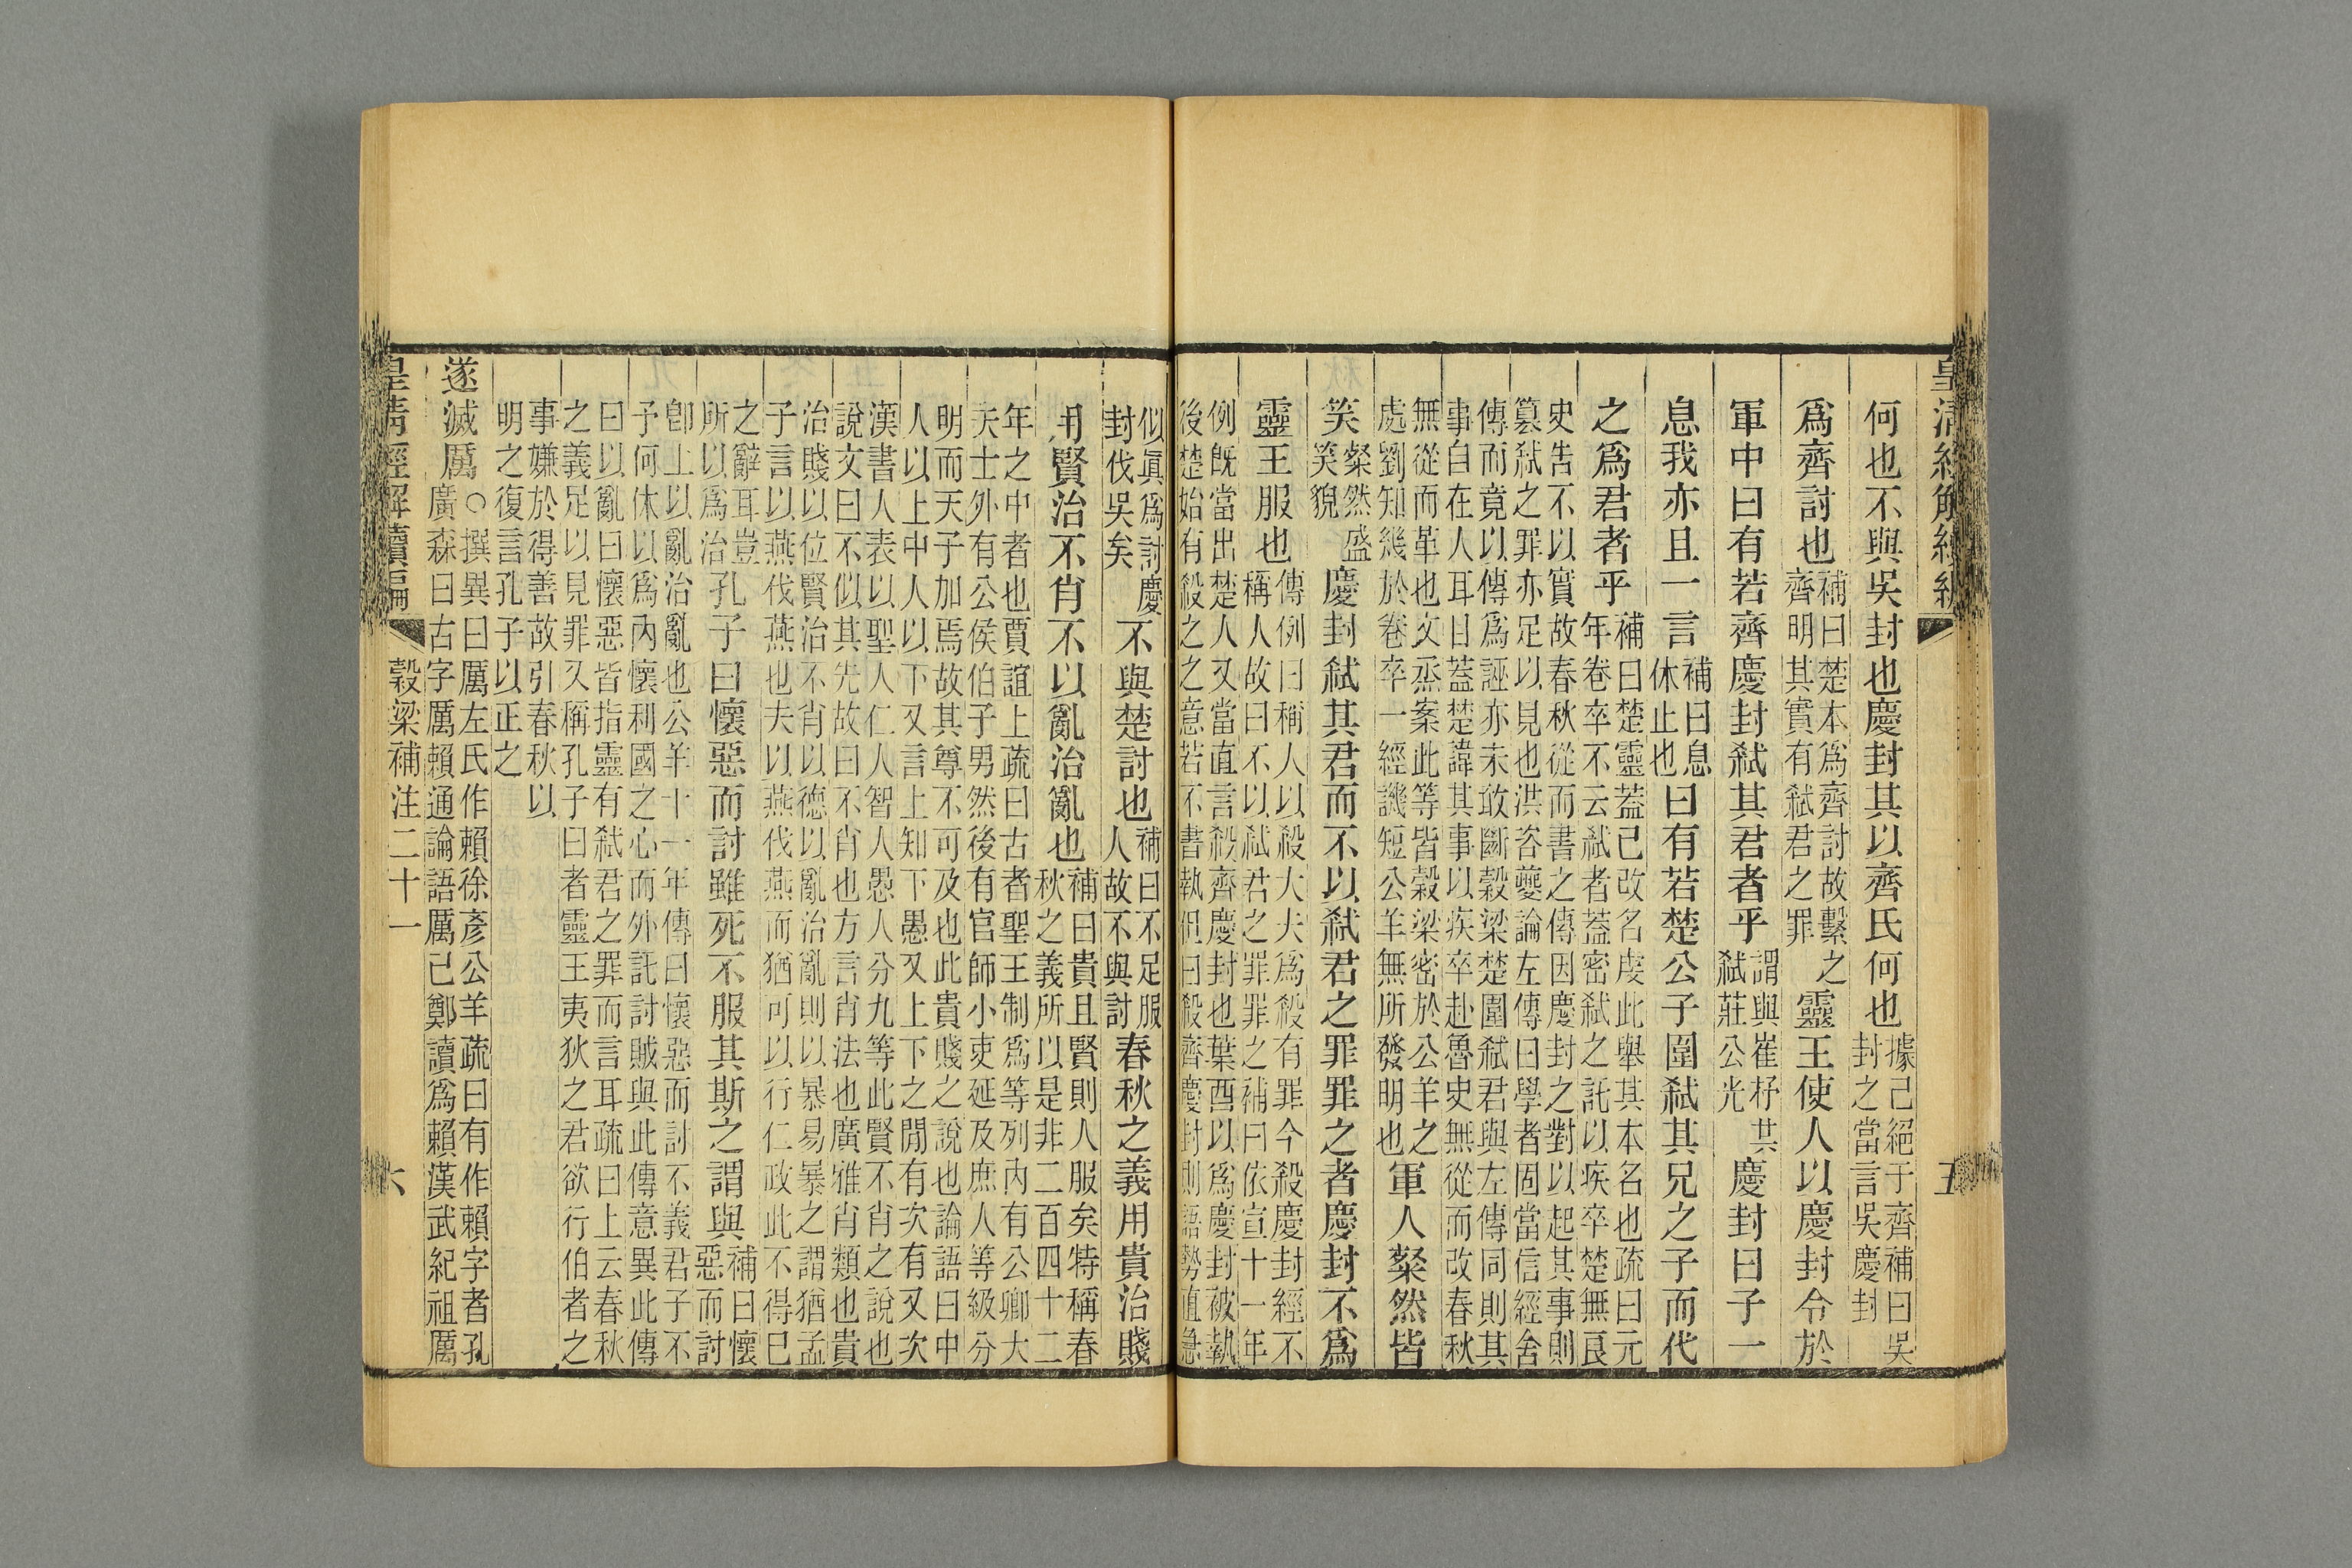 皇清經解續編
何也不與吳封也慶封其以齊氏何也據己絕于齊補曰吳封之當言吳慶封
爲齊討也補曰楚本爲齊討故繫之齊明其實有弒君之罪靈王使人以慶封令於
軍中曰有若齊慶封弒其君者乎謂與崔杼共弒莊公光慶封曰子一
息我亦且一言補曰息休止也曰有若楚公子圍弒其兄之子而代
之爲君者乎補曰楚靈蓋已改名虔此舉其本名也疏曰元年卷卒不云弒者蓋密弒之託以疾卒楚無良
史告不以實故春秋從而書之傳因慶封之對以起其事則篡弒之罪亦足以見也洪咨夔論左傳曰學者固當信經舍
傳而竟以傳爲誣亦未敢斷穀梁楚圍弒君與左傳同則其事自在人耳目蓋楚諱其事以疾卒赴魯史無從而改春秋
無從而革也文烝案此等皆穀梁密於公羊之處劉知幾於卷卒一經譏短公羊無所發明也軍人粲然皆
笑粲然盛笑貌慶封弒其君而不以弒君之罪罪之者慶封不爲
靈王服也傳例曰稱人以殺大夫爲殺有罪今殺慶封經不稱人故曰不以弒君之罪罪之補曰依宣十一年
例旣當出楚人又當直言殺齊慶封也葉酉以爲慶封被執後楚始有殺之之意若不書執但曰殺齊慶封則語勢直急
似眞爲討慶封伐吳矣不與楚討也補曰不足服人故不與討春秋之義用貴治賤
用賢治不肖不以亂治亂也補曰貴且賢則人服矣特稱春秋之義所以是非二百四十二
年之中者也賈誼上疏曰古者聖王制爲等列內有公卿大夫士外有公侯伯子男然後有官師小吏延及庶人等級分
明而天子加焉故其尊不可及也此貴賤之說也論語曰中人以上中人以下又言上知下愚又上下之閒有次有又次
漢書人表以聖人仁人智人愚人分九等此賢不肖之說也說文曰不似其先故曰不肖也方言肖法也廣雅肖類也貴
治賤以位賢治不肖以德以亂治亂則以暴易暴之謂猶孟子言以燕伐燕也夫以燕伐燕而猶可以行仁政此不得已
之辭耳豈所以爲治孔子曰懷惡而討雖死不服其斯之謂與補曰懷惡而討
卽上以亂治亂也公羊十一年傳曰懷惡而討不義君子不予何休以爲內懷利國之心而外託討賊與此傳意異此傳
曰以亂曰懷惡皆指靈有弒君之罪而言耳疏曰上云春秋之義足以見罪又稱孔子曰者靈王夷狄之君欲行伯者之
事嫌於得善故引春秋以明之復言孔子以正之
遂滅厲○撰異曰厲左氏作賴徐彥公羊疏曰有作賴字者孔廣森曰古字厲賴通論語厲己鄭讀爲賴漢武紀祖厲
皇清經解續編 穀梁補注二十一 六